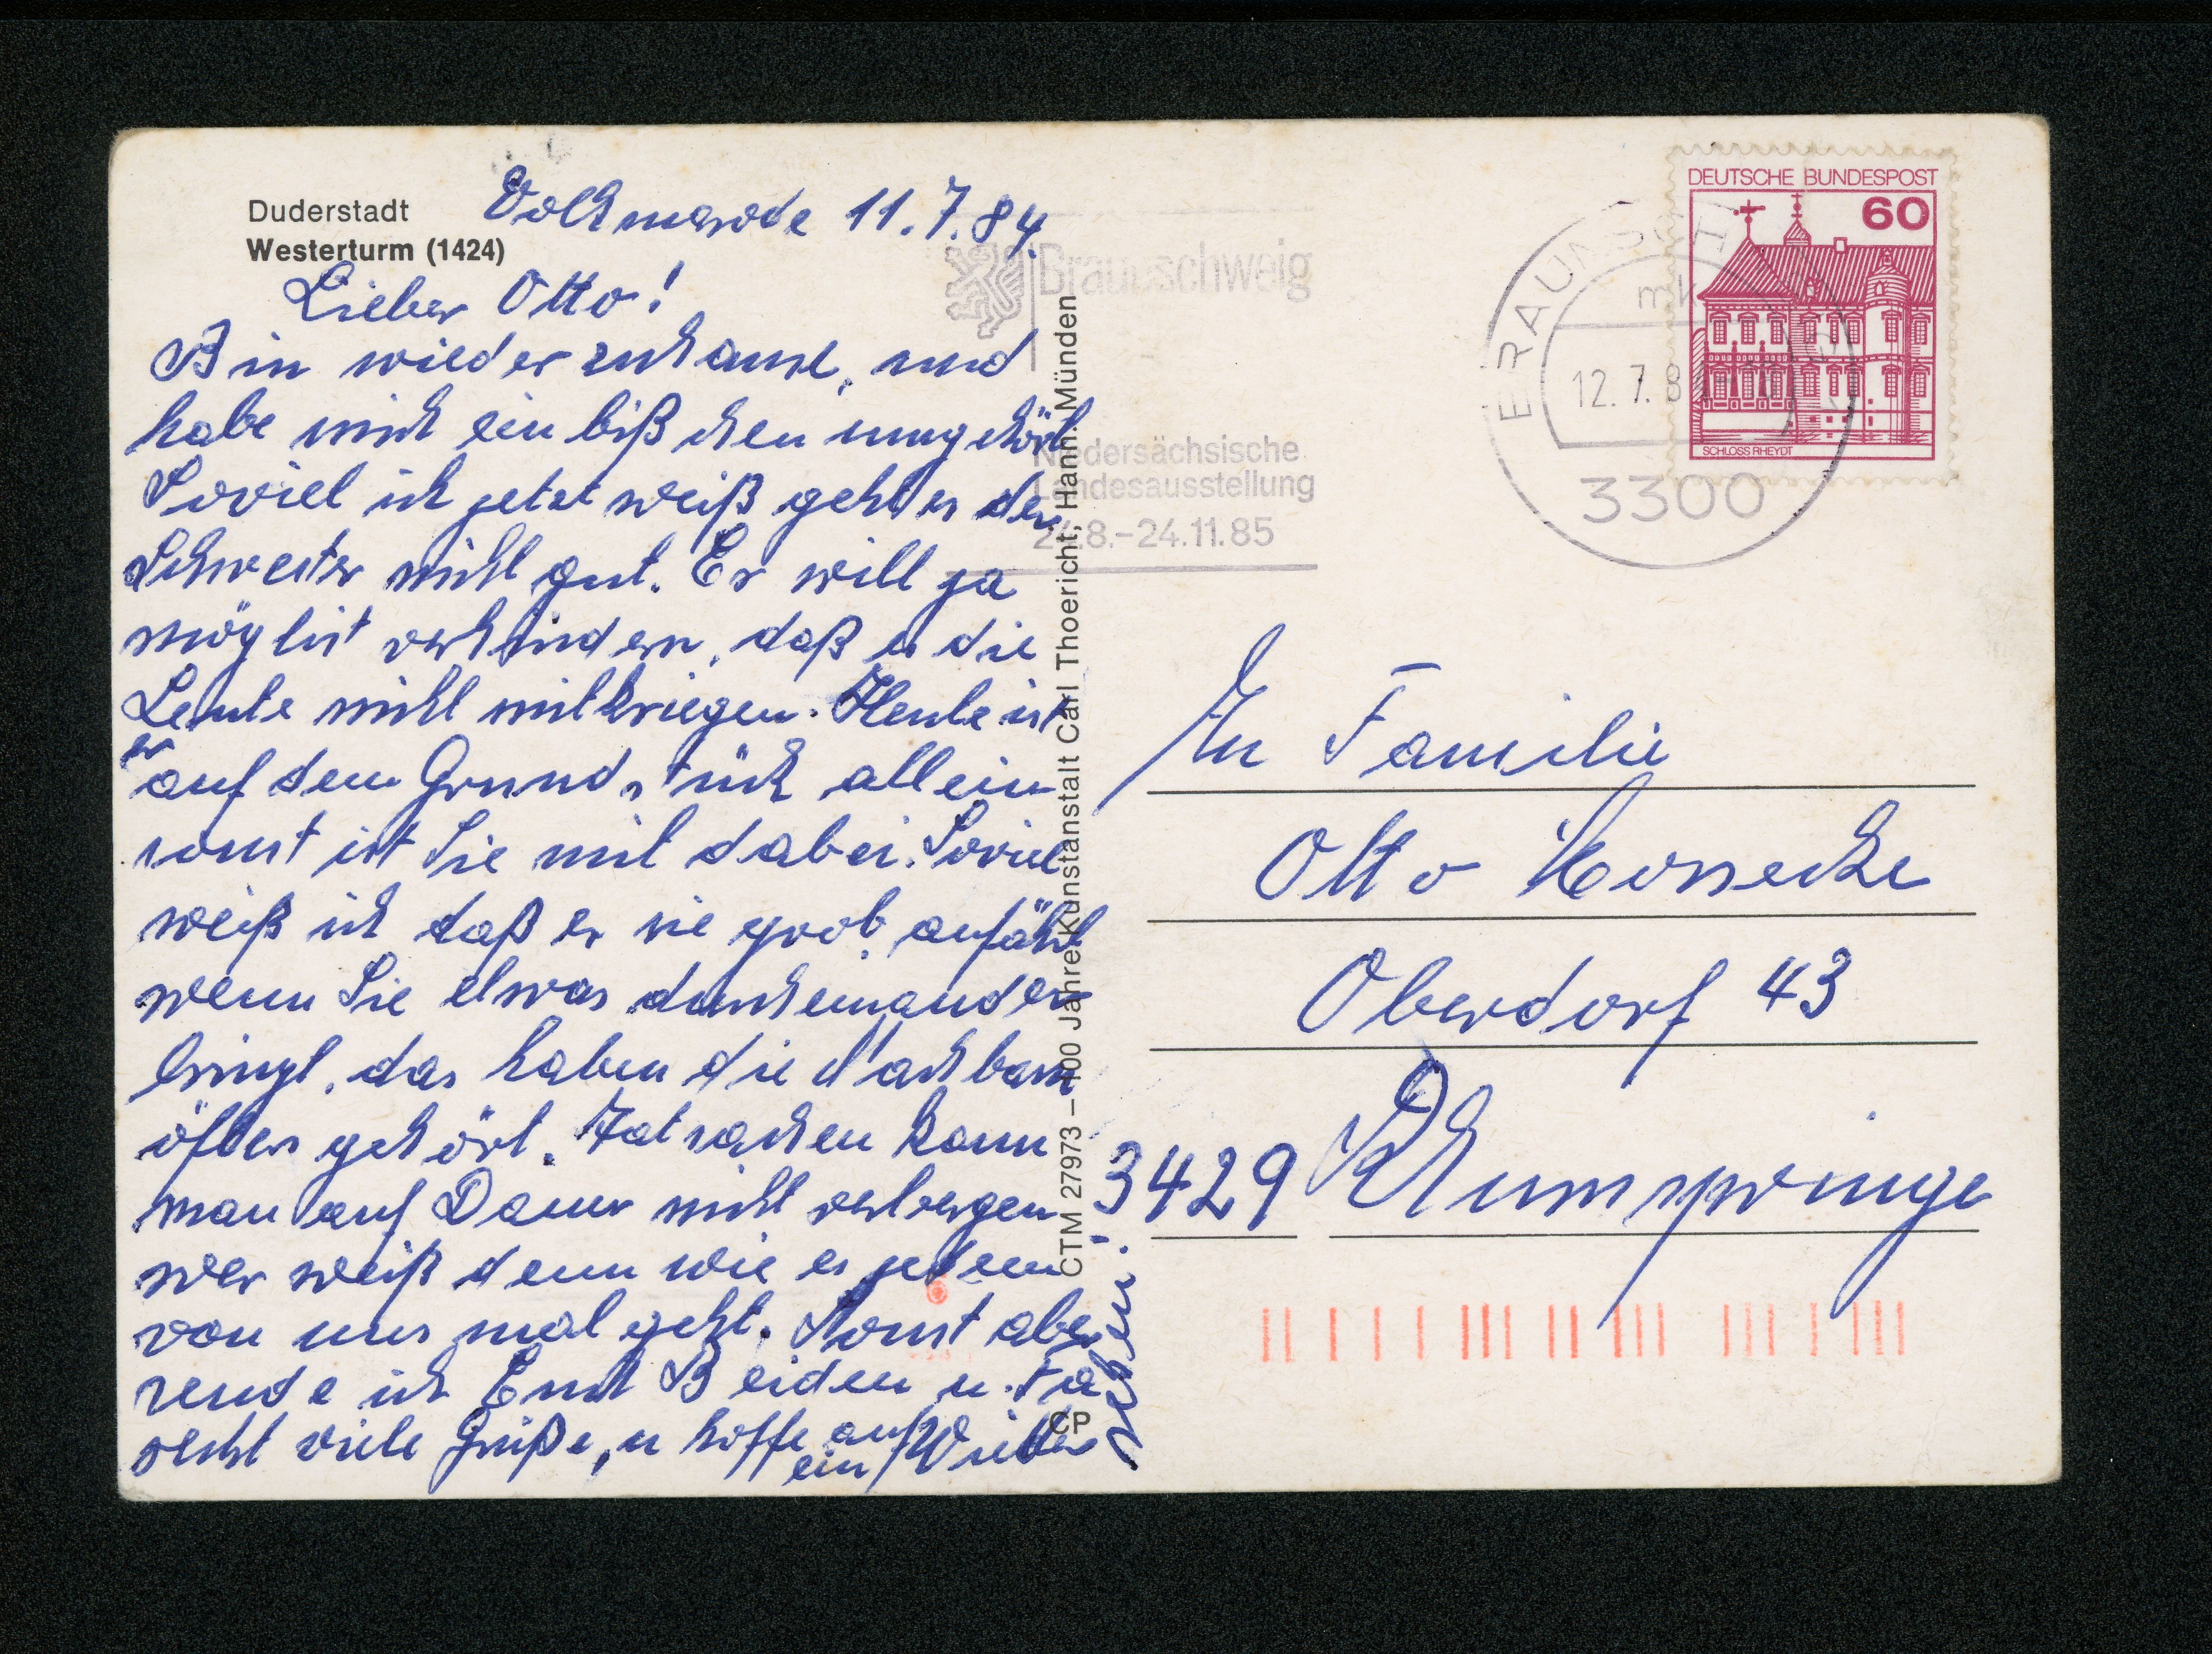 Duderstadt
Westerturm (1424)
Volkmarode 11.7.84.
Lieber Otto!
Bin wieder zuhause, und
habe mich ein bißchen umgehört
Soviel ich jetzt weiß geht es der
Schwester nicht gut. Er will ja
möglist verhindern, daß es die
Leute nicht mitkriegen. Heute ist
er
auf dem Grundstück allein
sonst ist Sie mit dabei. Soviel
weiß ich daß er sie grob anfährt
wenn Sie etwas durcheinander
bringt, das haben die Nachbarn
öfters gehört. Tatsachen kann
man auf Dauer nicht verbergen
wer weiß denn wie es jedem
von uns mal geht. Sonst aber
sende ich Euch Beiden u. Fa
recht viele Grüße, u hoffe auf
ein Wieder
sehen.
CTM 27973 – 100 Jahre Kunstanstalt Carl Thoericht, Hann. Münden
CP
Braunschweig
Niedersächsische
Landesausstellung
24.8.-24.11.85
BRAUNSCHWEIG
mk
12.7.84
3300
DEUTSCHE BUNDESPOST
60
SCHLOSS RHEYDT
An Familie
Otto
Oberdorf 43
3429 Rhumspringe